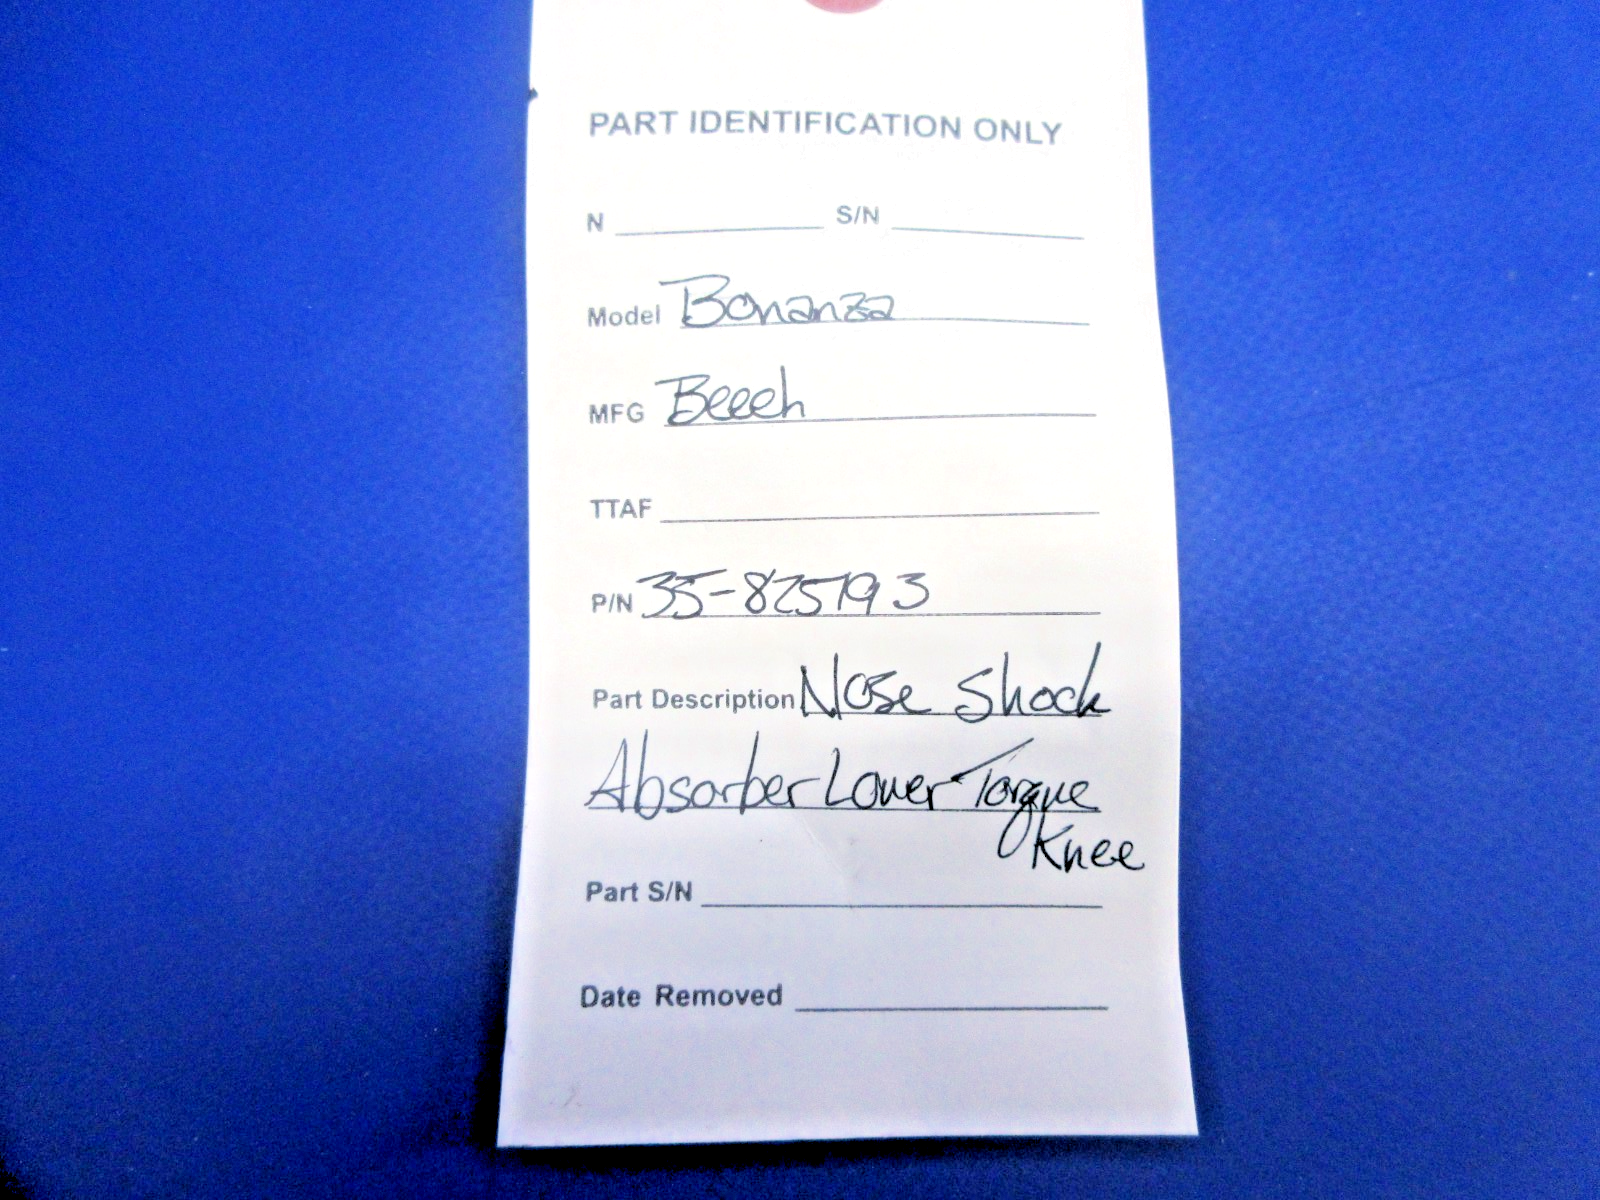 PART IDENTIFICATION ONLY
N S/N
Model Bonanza
MFG Beech
TTAF
P/N 35-825793
Part Description Nose Shock
Absorber Lower Torque
Knee
Part S/N
Date Removed